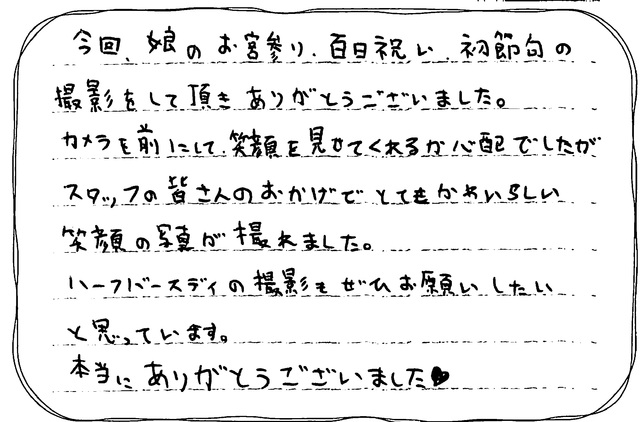 今回、娘のお宮参り、百日祝い、初節句の
撮影をして頂きありがとうございました。
カメラを前にして、笑顔を見せてくれるか心配でしたが
スタッフの皆さんのおかげでとてもかわいらしい
笑顔の写真が撮れました。
ハーフバースディの撮影もぜひお願いしたい
と思っています。
本当にありがとうございました♥